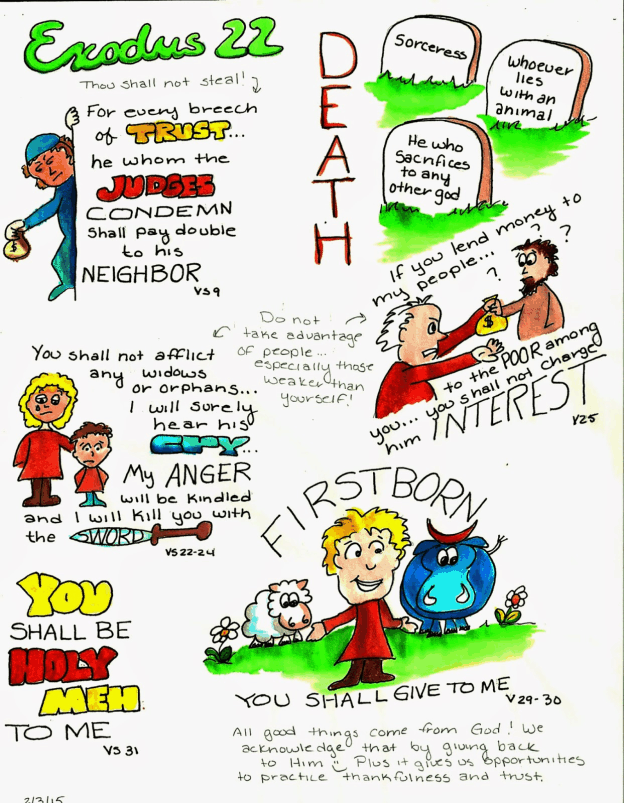 Exodus 22
Thou shall not steal!
For every breech
of TRUST...
he whom the
JUDGES
CONDEMN
shall pay double
to his
NEIGHBOR
VS 9
DEATH
Sorceress
Whoever
lies
with an
animal
He who
sacrifices
to any
other god
If you lend money to
my people...
? ? ?
$
$
to the POOR among
you... you shall not charge
him INTEREST
V25
Do not
take advantage
of people...
especially those
weaker than
yourself!
You shall not afflict
any widows
or orphans...
I will surely
hear his
CRY...
My ANGER
will be kindled
and I will kill you with
the SWORD
VS 22-24
FIRSTBORN
YOU SHALL GIVE TO ME
V 29-30
YOU
SHALL BE
HOLY
MEN
TO ME
VS 31
All good things come from God! We
acknowledge that by giving back
to Him Plus it gives us opportunities
to practice thankfulness and trust.
2/3/15